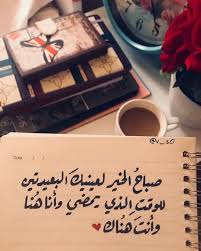 صباحُ الخير لعينيكَ البعيدتين
للوقتِ الذي يمضي وأنا هُنا
وأنتَ هُناك